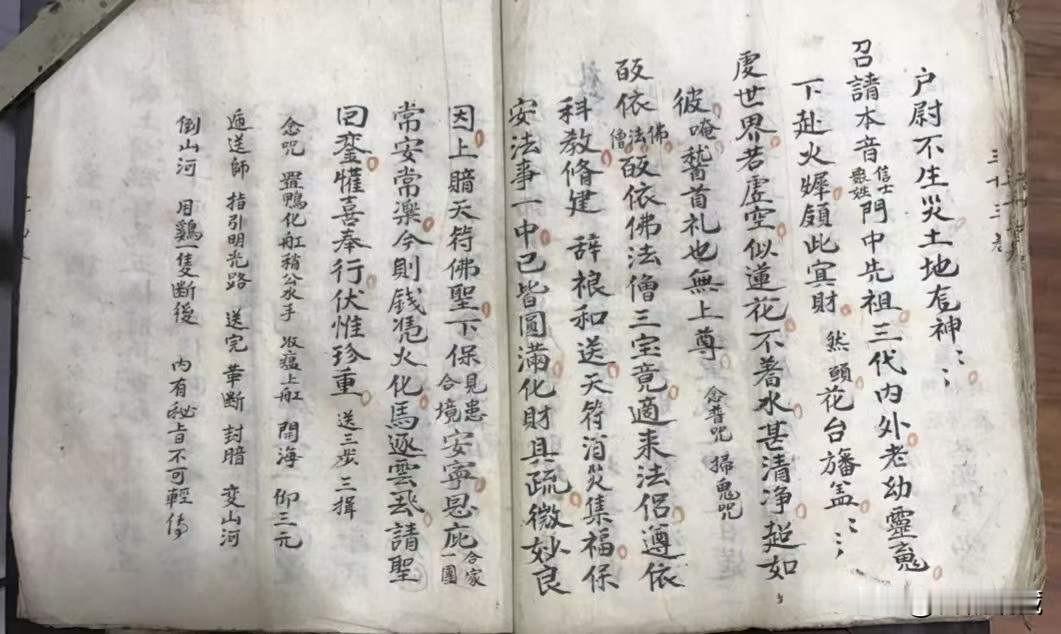 户尉不生災土地旡神：；
召請本音信士衆姓門中先祖三代内外老幼靈䰟
下赴火墀領此冥財　然頭花台旛盖：；
處世界若虚空似蓮花不著水甚清净超如
彼唵䭬首礼也無上尊　念普咒　掃鬼咒
皈依佛法僧皈依佛法僧三宝竟適来法侣遵依
科教脩建　辞禳和送天符消災集福保
安法事一中已皆圓滿化財具疏微妙良
因上賠天符佛聖下保見患合境安寧恩庇合家一團
常安常樂今則錢凴火化馬逐雲去請聖
回鑾懽喜奉行伏惟珍重　送三步三揖
念咒　置鴨化船稍公水手　收瘟上船　開海　仰三元
遁送師　指引明光路　送完　革断　封暗　变山河
倒山河　用鷄一隻斷後　内有秘旨不可輕傳
三十三卷